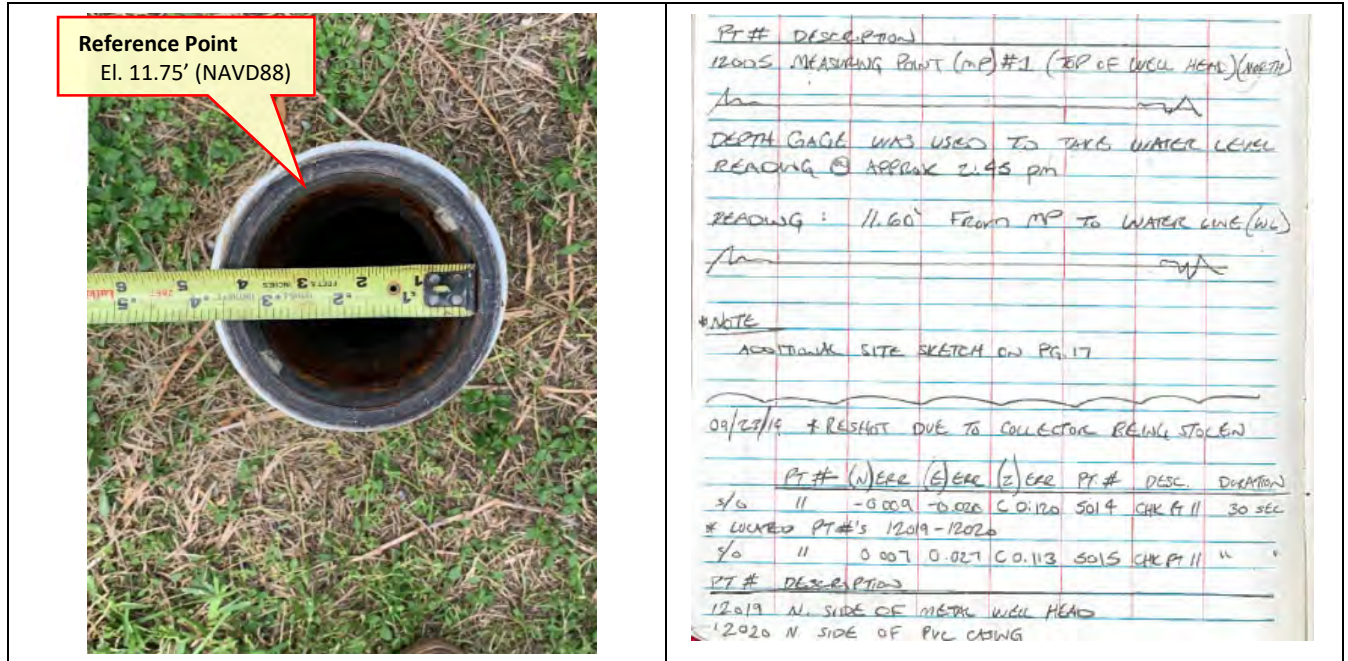 Reference Point
El. 11.75’ (NAVD88)
1 2 3 4 5 6
PT # DESCRIPTION
12005 MEASURING POINT (MP) #1 (TOP OF WELL HEAD)(NORTH)
DEPTH GAGE WAS USED TO TAKE WATER LEVEL
READING @ APPROX 2:45 pm
READING : 11.60' FROM MP TO WATER LINE (WL)
*NOTE
ADDITIONAL SITE SKETCH ON PG. 17
09/23/19 * RESHOT DUE TO COLLECTOR BEING STOLEN
PT # (N) ERR (E) ERR (Z) ERR PT. # DESC. DURATION
S/O 11 -0.009 -0.020 C 0.120 5014 CHK PT 11 30 SEC
* LOCATED PT #'S 12019-12020
S/O 11 0.007 0.027 C 0.113 5015 CHK PT 11 " "
PT # DESCRIPTION
12019 N. SIDE OF METAL WELL HEAD
12020 N SIDE OF PVC CASING